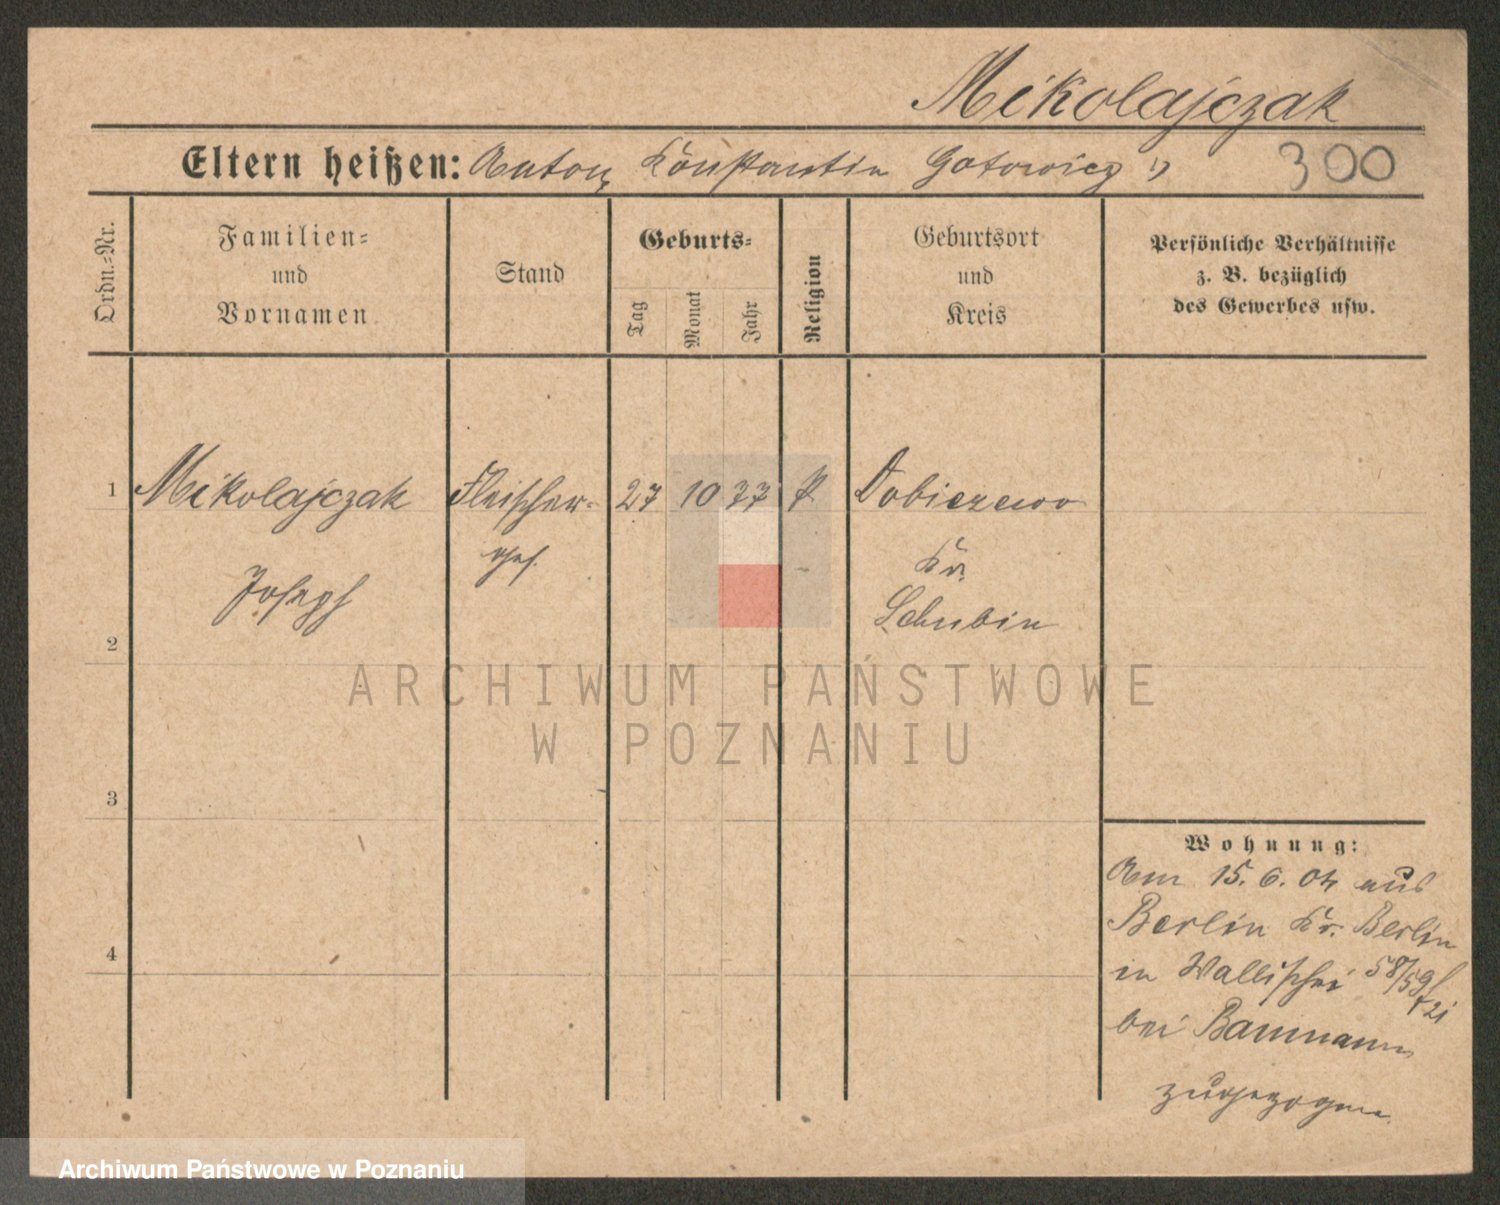 Mikolajczak
Eltern heißen: Anton, Konstantin Gotowicz
300
Ordn.=Nr.
Familien=
und
Vornamen
Stand
Geburts=
Tag
Monat
Jahr
Religion
Geburtsort
und
Kreis
Persönliche Verhältnisse
z. B. bezüglich
des Gewerbes usw.
1 Mikolajczak Fleischer= 27 10 77 Dobieszewo
ges. Kr.
Joseph Schubin
2
3
4
Wohnung:
Am 15. 6. 04 aus
Berlin Kr. Berlin
in Wallischei 58/59
bei Baumann
zugezogen
ARCHIWUM PAŃSTWOWE
W POZNANIU
Archiwum Państwowe w Poznaniu